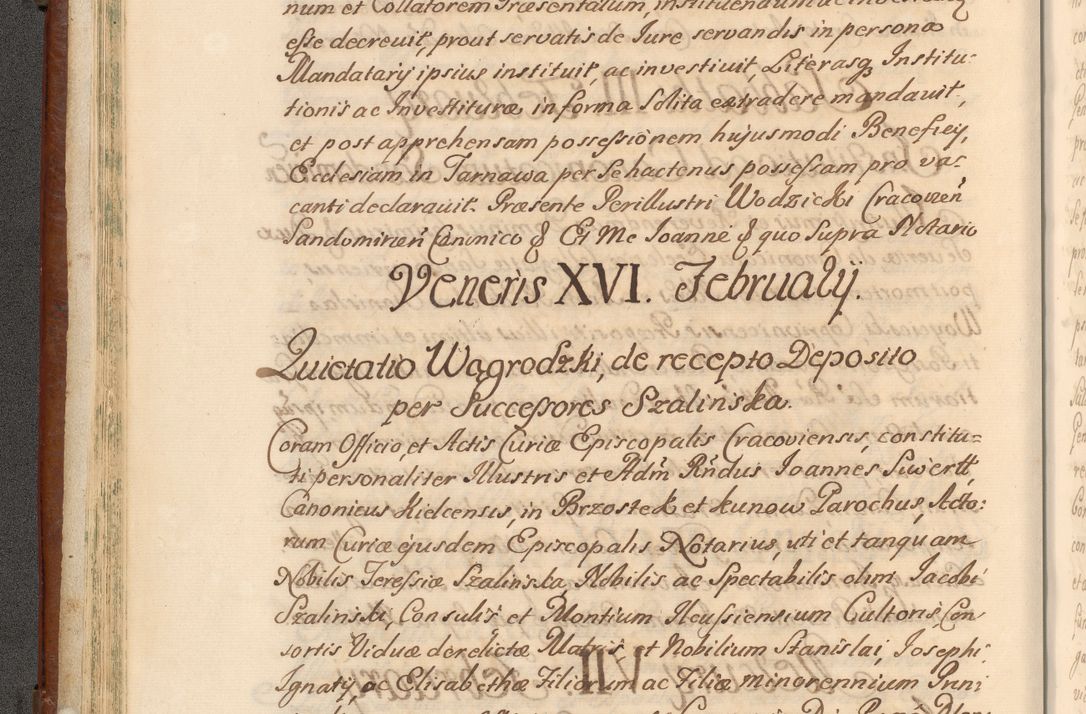 num et Collatorem Præsentatum, instituendum ac investiend
esse decreuit, prout servatis de Iure servandis in persona
Mandatarÿ ipsius instituit, ac investiuit, Literasq Institu-
tionis ac Investituræ in forma Solita extradere mandauit,
et post apprehensam possessionem hujusmodi Beneficÿ,
Ecclesiam in Tarnawa per se hactenus possessam pro va-
canti declarauit. Præsente Perillustri Wodzicki Cracovień
Sandomirień Canonico & Et Me Ioanne & quo Supra Notario
Veneris XVI. Februarÿ.
Quietatio Wągrodzki, de recepto Deposito
per Successores Szalińska.
Coram Officio, et Actis Curiæ Episcopalis Cracoviensis, constitu-
ti personaliter Illustris et Adm̃ Rńdus Ioannes Suwertt,
Canonicus Kielcensis, in Brzostek et Kunow Parochus, Acto-
rum Curiæ ejusdem Episcopalis Notarius, uti et tanquam
Nobilis Teressiæ Szalinska, Nobilis ac Spectabilis olim Iacobi
Szalinski, Consulis et Montium Ilcussiensium Cultoris, Con
sortis Viduæ derelictæ Matris, et Nobilium Stanislai, Iosephi,
Ignatÿ, ac Elisabethæ Filiorum ac Filiæ minorennium